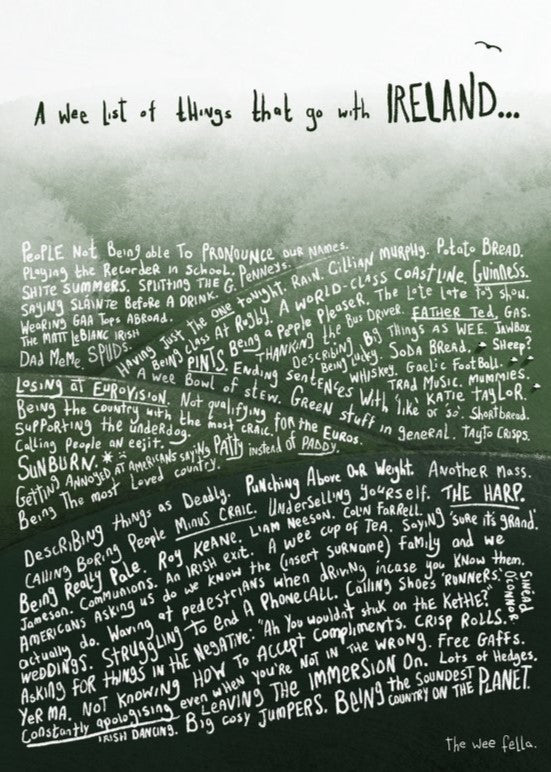 A wee list of things that go with IRELAND...
PeOPLE Not Being able To PRONOUNCE our NAMES.
Playing the Recorder in School. Penneys.
SHITE SUMMERS. SPLITTING THE G.
SAYING SLAINTE BEFORE A DRINK.
WEARING GAA TOPS ABROAD.
THE MATT LeBLANC IRISH
DAD MeMe. SPUDS.
HAVING JUST THE ONE tonight. RAIN. Cillian MURPHY. Potato BREAD.
BEING CLASS AT RUGBY. A WORLD-CLASS COASTLINE. GUINNESS.
PINTS. Being a People Pleaser. The Late Late Toy show.
A wee Bowl of stew. THANKING the Bus Driver. FATHER Ted. GAS.
Ending sentences with 'like or 'so'. Describing Big Things as WEE. JAWBOX.
Being Lucky. SODA BREAD. Sheep?
WHISKEY. Gaelic Football.
TRAD MUSIC. MUMMIES.
KATIE TAYLOR.
Green stuff in general. Shortbread.
TAYTO CRISPS.
LOSING AT EUROVISION. Not qualifying for the Euros.
Being the country with the most CRAIC.
Supporting the underdog.
Calling People an eejit.
SUNBURN.
GETTING ANNOYED AT AMERICANS SAYING PATTY instead of PADDY.
Being The most Loved country.
Describing things as Deadly. Punching Above Our Weight. Another Mass.
CALLING BORING People MINUS CRAIC. Underselling yourself. THE HARP.
Being Really Pale. Roy KEANE. LIAM Neeson. Colin FARRELL.
Jameson. Communions. An IRISH exit. A wee cup of TEA. SAYING 'sure its grand'.
AMERICANS Asking us do we know the (insert surname) family and we
actually do. Waving at pedestrians when driving incase you know them.
WEDDINGS. STRUGGLING TO END A PHONECALL. Calling Shoes 'RUNNERS'. SINEAD O'CONNOR
Asking for things in the Negative: "Ah You wouldn't stick on the Kettle?"
YER MA. NOT KNOWING HOW TO Accept Compliments. CRISP ROLLS.
Constantly apologising even when you're NOT IN THE WRONG. FREE GAFFS.
IRISH DANCING. LEAVING THE IMMERSION On. Lots of Hedges.
Big cosy JUMPERS. BEING the SOUNDEST COUNTRY ON THE PLANET.
The wee fella.